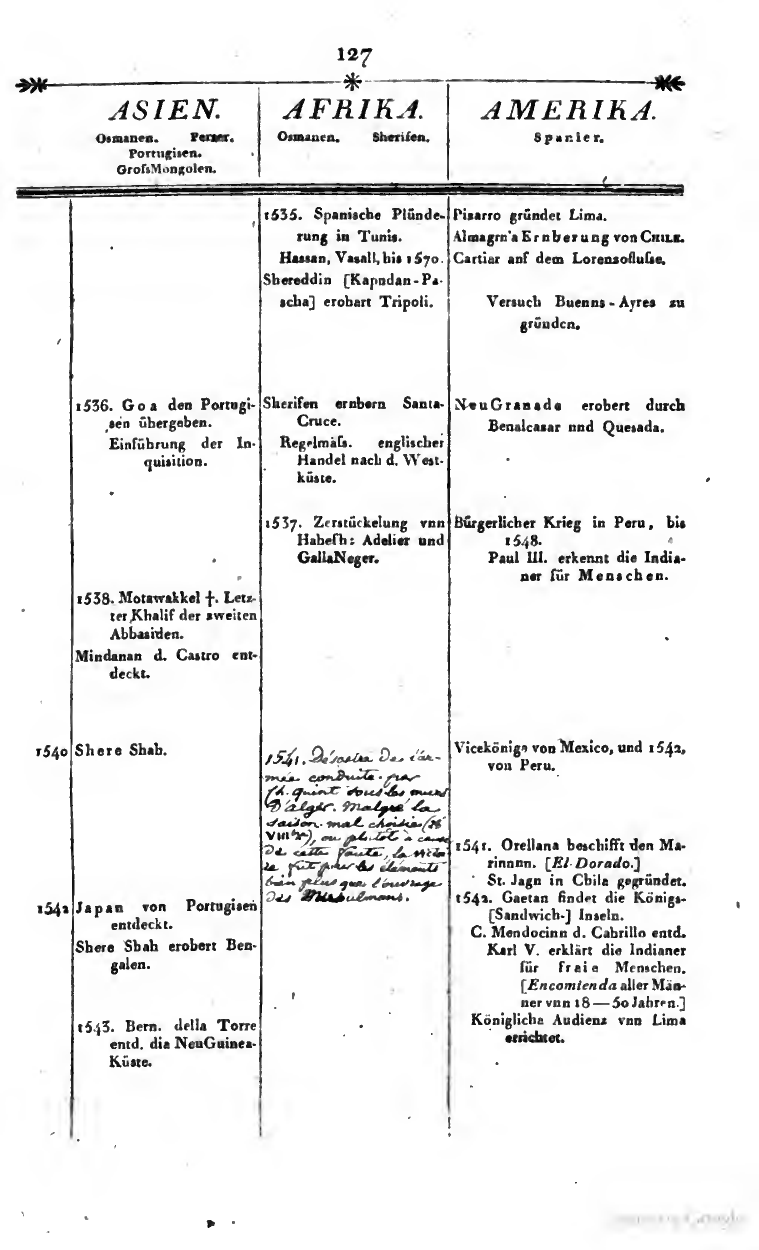 127
ASIEN.
Osmanen. Perser.
Portugisen.
GroſsMongolen.
AFRIKA.
Osmanen. Sherifen.
AMERIKA.
Spanier.
1535. Spanische Plünde-
rung in Tunis.
Hassan, Vasall, bis 1570.
Shereddin [Kapudan-Pa-
scha] erobert Tripoli.
Pisarro gründet Lima.
Almagro's Eroberung von CHILE.
Cartier auf dem Lorenzofluſse.
Versuch Buenos-Ayres zu
gründen.
1536. Goa den Portugi-
sen übergeben.
Einführung der In-
quisition.
Sherifen erobern Santa-
Cruce.
Regelmäſs. englischer
Handel nach d. West-
küste.
NeuGranada erobert durch
Benalcasar und Quesada.
1537. Zerstückelung von
Habeſh: Adelier und
GallaNeger.
Bürgerlicher Krieg in Peru, bis
1548.
Paul III. erkennt die India-
ner für Menschen.
1538. Motawakkel †. Letz-
ter Khalif der zweiten
Abbasiden.
Mindanao d. Castro ent-
deckt.
1540 Shere Shah.
1541. Désastre de l'ar-
mée conduite par
Ch. quint sous les murs
D'alger. Malgré la
saison mal choisie (26
VIIIbre), ou plutôt à cause
de cette faute, la victoi-
re fut pour les éléments
bien plus que l'ouvrage
des Musulmans.
Vicekönige von Mexico, und 1542,
von Peru.
1541. Orellana beschifft den Ma-
rinnon. [El Dorado.]
St. Jago in Chile gegründet.
1542 Japan von Portugisen
entdeckt.
Shere Shah erobert Ben-
galen.
1542. Gaetan findet die Königs-
[Sandwich-] Inseln.
C. Mendocino d. Cabrillo entd.
Karl V. erklärt die Indianer
für freie Menschen.
[Encomienda aller Män-
ner von 18—50 Jahren.]
Königliche Audienz von Lima
errichtet.
1543. Bern. della Torre
entd. die NeuGuinea-
Küste.